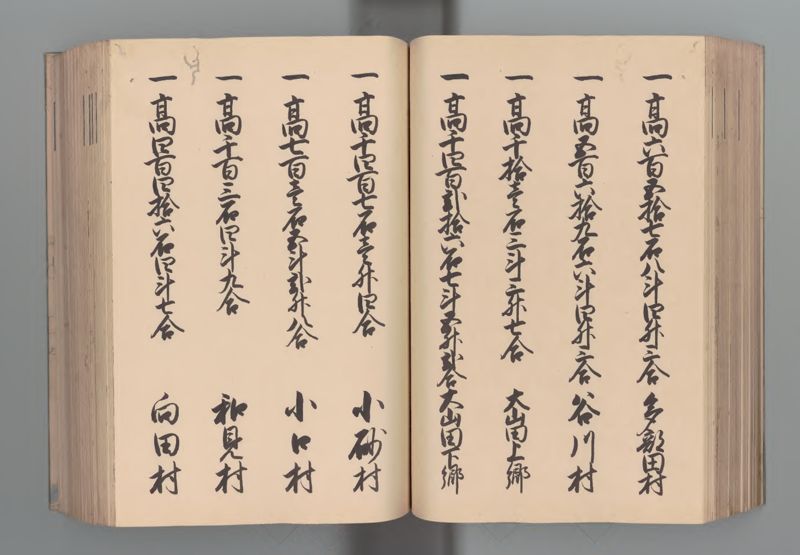 一高六百五拾七石八斗四升二合 多部田村
一高五百六拾九石六斗四升二合 谷川村
一高千拾壱石三斗二升七合 大山田上郷
一高千四百弐拾六石七斗五升弐合 大山田下郷
一高千四百七石壱升四合 小砂村
一高七百壱石五斗弐升八合 小口村
一高千百三石四斗九合 和見村
一高四百四拾六石四斗七合 向田村